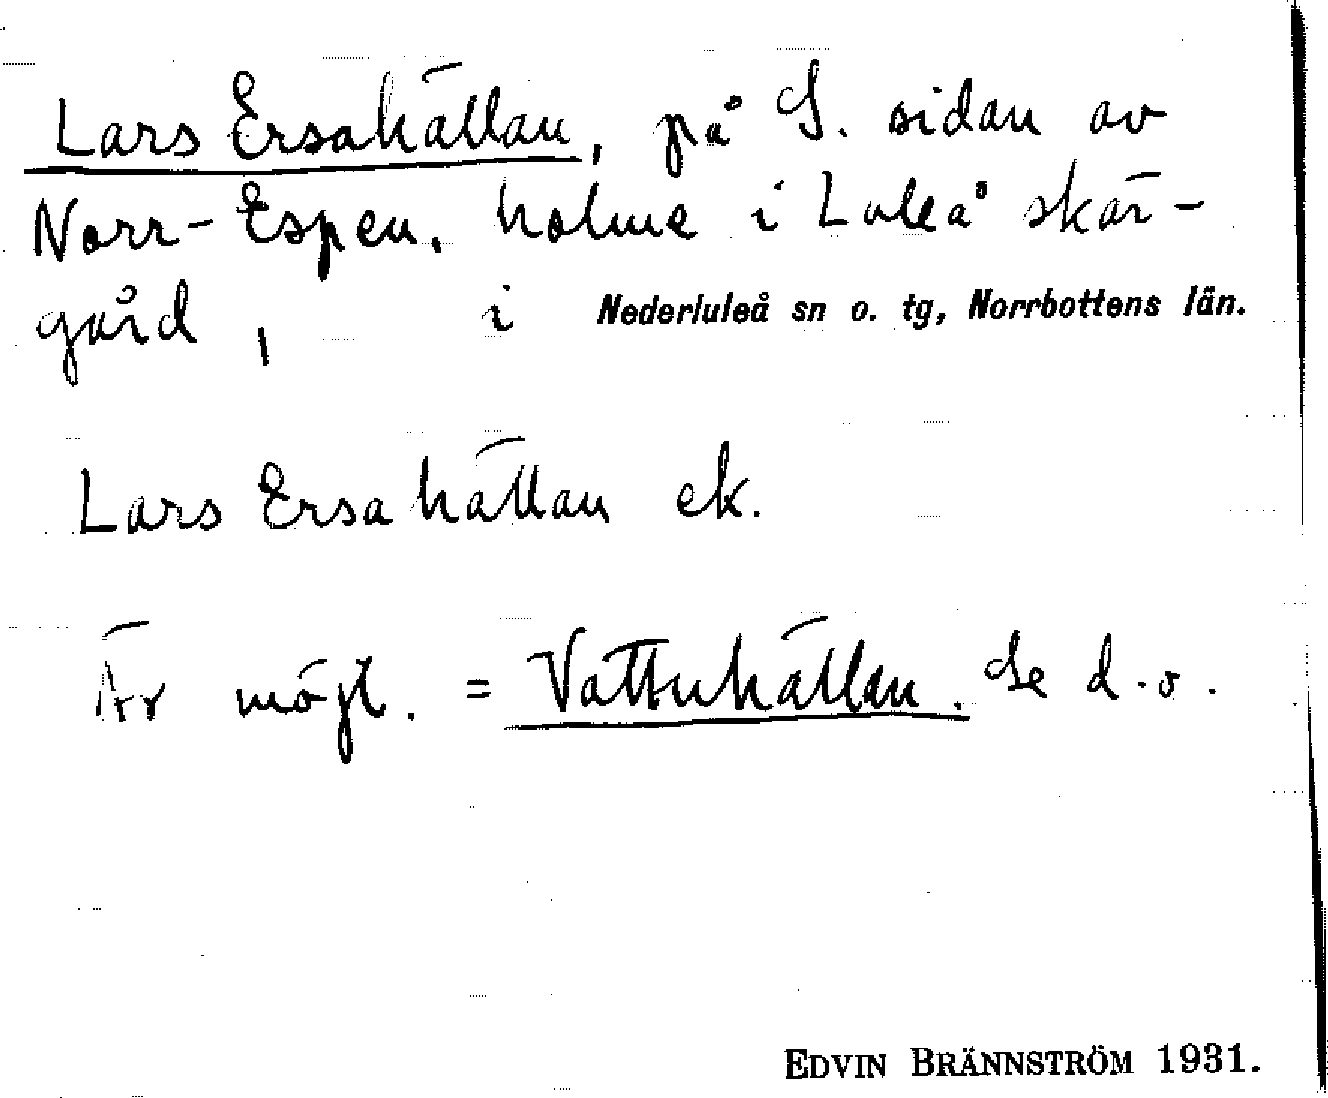 Lars Ersahällan, på S. sidan av
Norr-Espen, holme i Luleå skär-
gård, i Nederluleå sn o. tg, Norrbottens län.
Lars Ersa hällan ek.
Är möjl. = Vattuhällan. Se d.o.
EDVIN BRÄNNSTRÖM 1931.